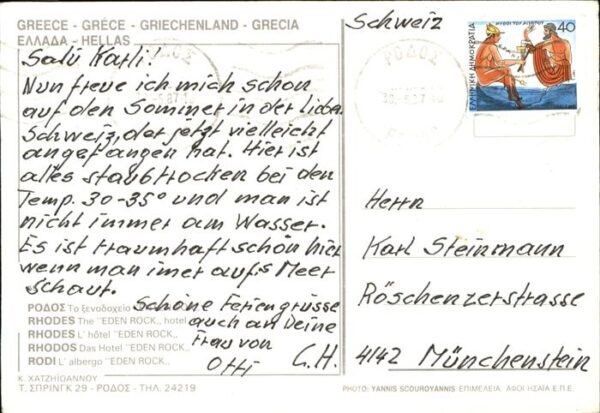 GREECE - GRÉCE - GRIECHENLAND - GRECIA
ΕΛΛΑΔΑ - HELLAS
Salü Karli!
Nun freue ich mich schon
auf den Sommer in der liebe
Schweiz, der jetzt vielleicht
angefangen hat. Hier ist
alles staubtrocken bei den
Temp. 30-35° und man ist
nicht immer am Wasser.
Es ist traumhaft schön hier
wenn man imer auf's Meer
schaut.
Schöne Feriengrüsse
auch an Deine
Frau von
Otti C.H.
ΡΟΔΟΣ Το ξενοδοχείο
RHODES The "EDEN ROCK,, hotel
RHODES L' hôtel "EDEN ROCK,,
RHODOS Das Hotel "EDEN ROCK,,
RODI L' albergo "EDEN ROCK,,
Κ. ΧΑΤΖΗΙΩΑΝΝΟΥ
Τ. ΣΠΡΙΝΓΚ 29 - ΡΟΔΟΣ - ΤΗΛ. 24219
Schweiz
ΡΟΔΟΣ
ΜΥΘΟΙ ΤΟΥ ΑΙΣΩΠΟΥ
40
ΕΛΛΗΝΙΚΗ ΔΗΜΟΚΡΑΤΙΑ
Herrn
Karl Steinmann
Röschenzerstrasse
4142 Münchenstein
PHOTO: YANNIS SCOUROYANNIS - ΕΠΙΜΕΛΕΙΑ: ΑΦΟΙ ΗΣΑΪΑ Ε.Π.Ε.